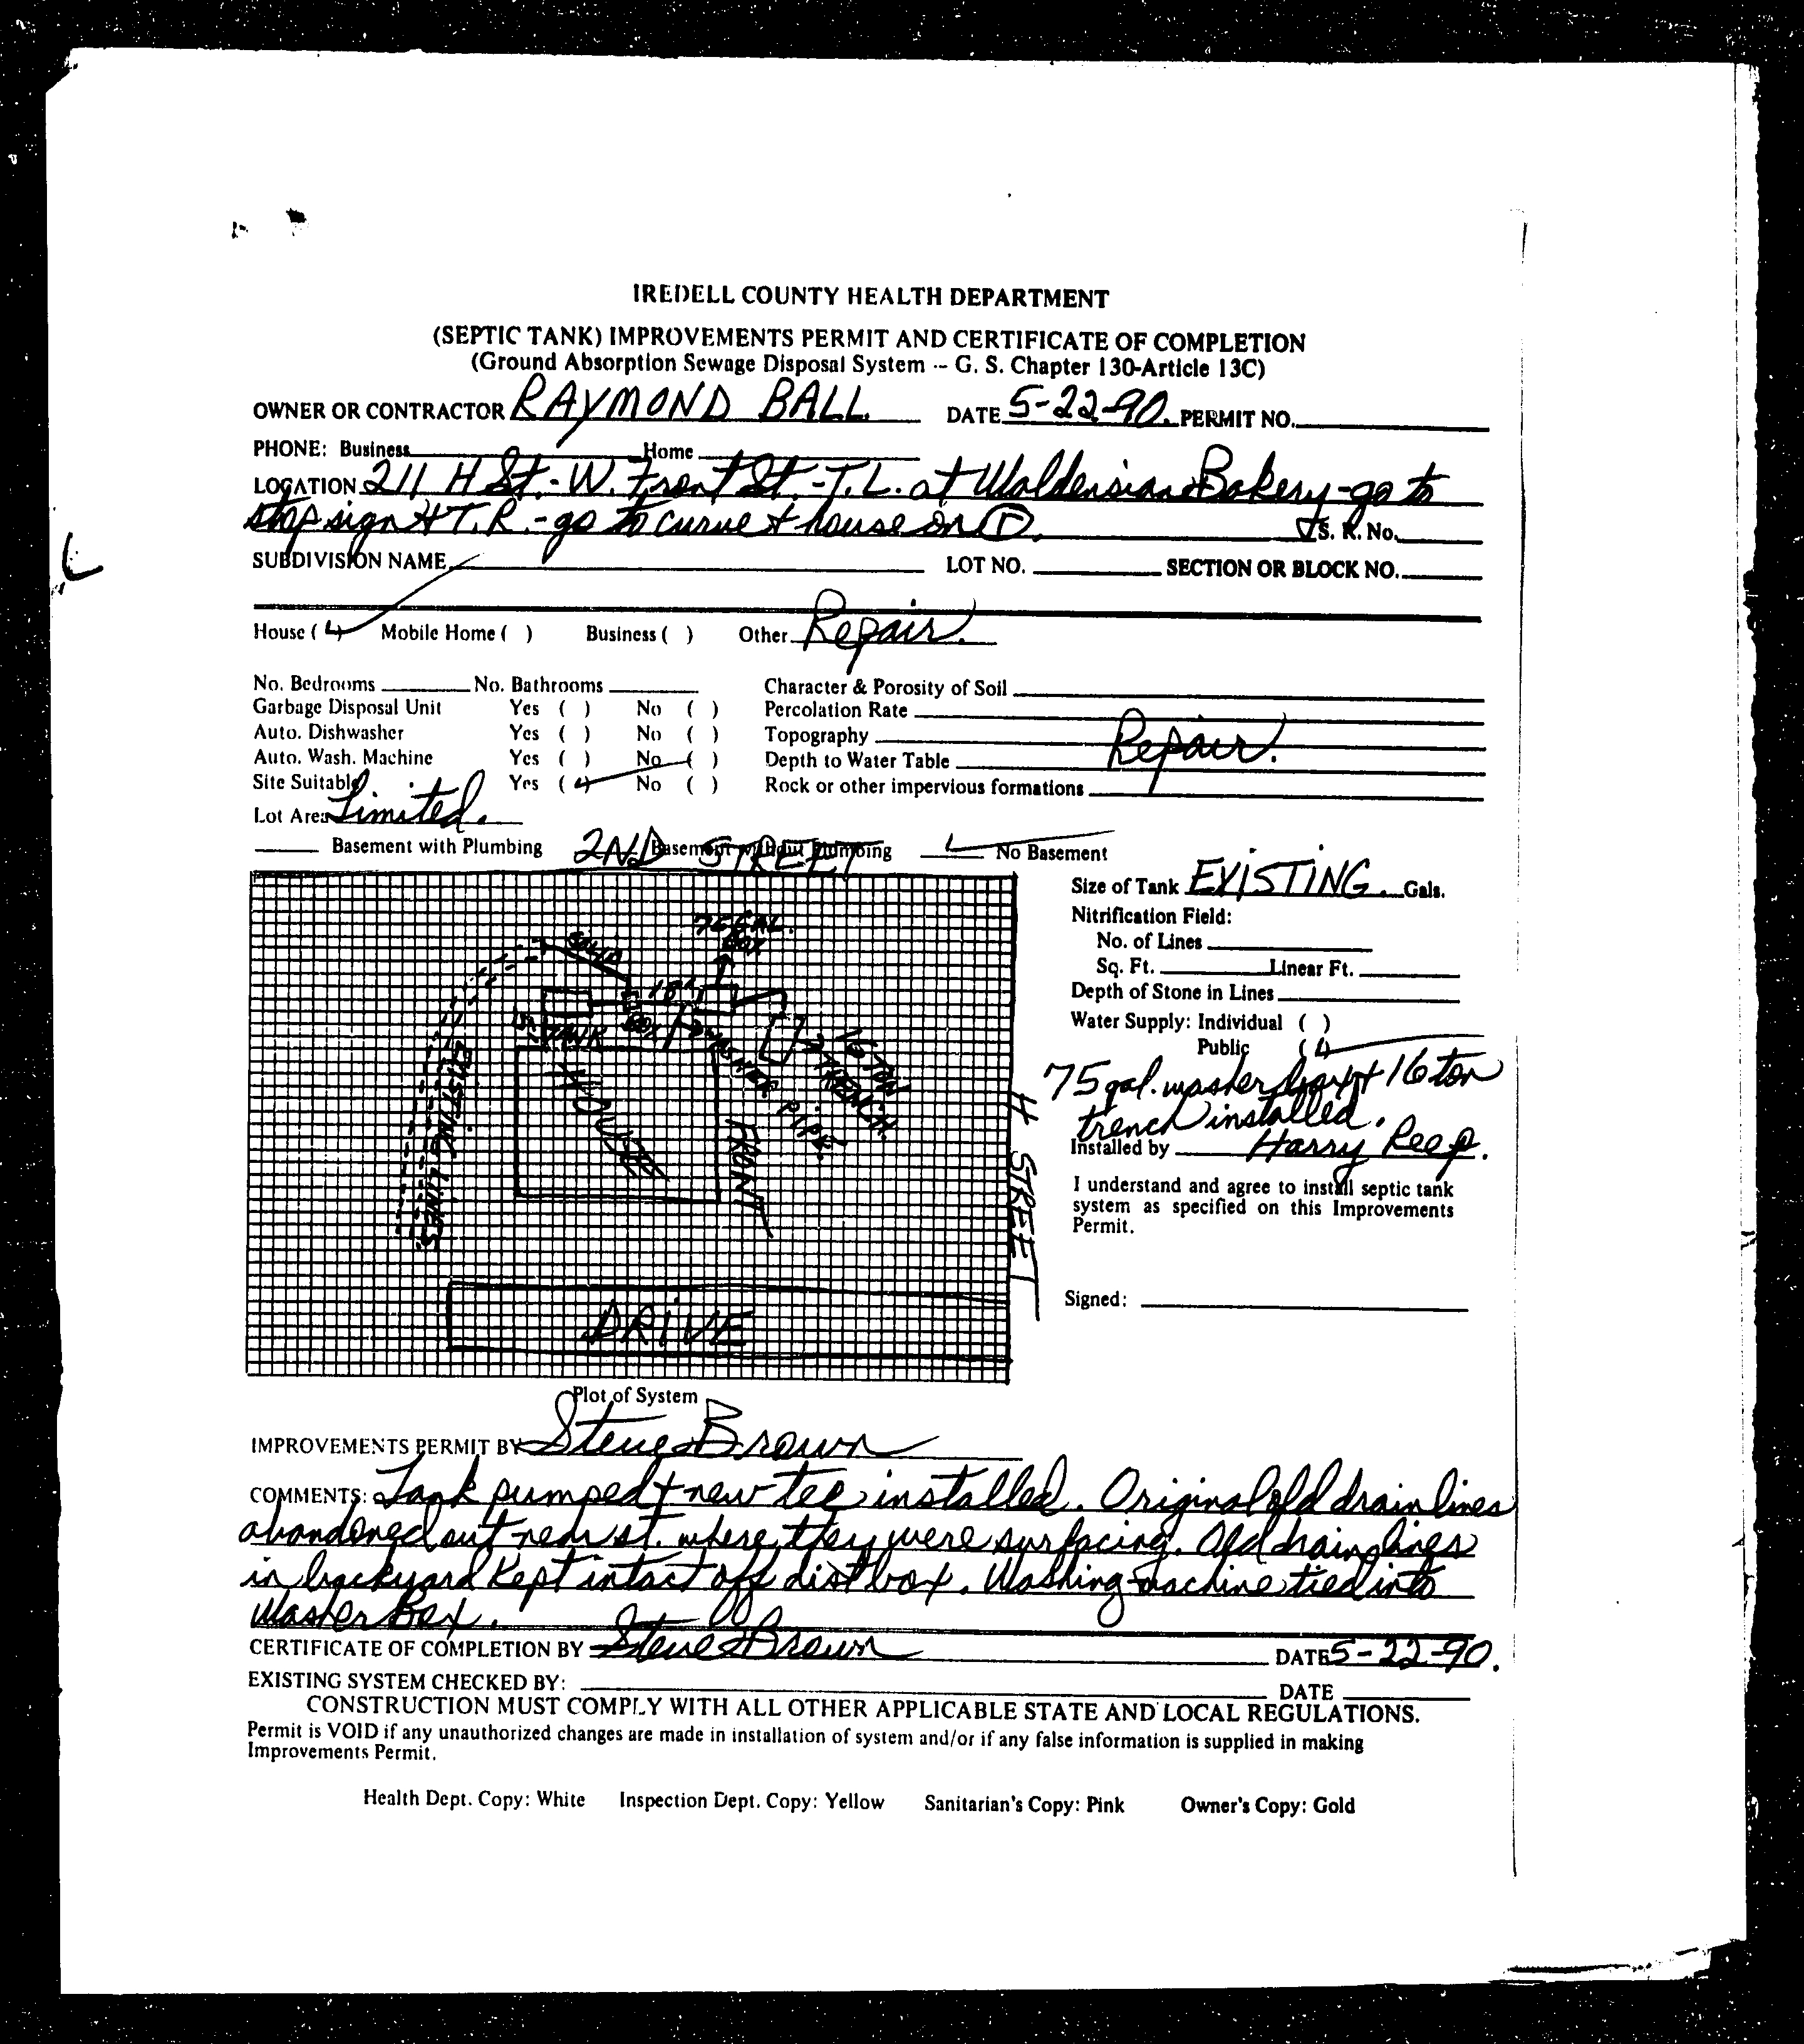 IREDELL COUNTY HEALTH DEPARTMENT
(SEPTIC TANK) IMPROVEMENTS PERMIT AND CERTIFICATE OF COMPLETION
(Ground Absorption Sewage Disposal System -- G. S. Chapter 130-Article 13C)
OWNER OR CONTRACTOR RAYMOND BALL DATE 5-22-90. PERMIT NO.
PHONE: Business Home
LOCATION 211 H St. - W. Front St. - T.L. at Waldensian Bakery - go to
stop sign & T.R. - go to curve & house on (r). S. R. No.
SUBDIVISION NAME LOT NO. SECTION OR BLOCK NO.
House ( ) Mobile Home ( ) Business ( ) Other Repair.
No. Bedrooms No. Bathrooms Character & Porosity of Soil
Garbage Disposal Unit Yes ( ) No ( ) Percolation Rate
Auto. Dishwasher Yes ( ) No ( ) Topography Repair.
Auto. Wash. Machine Yes ( ) No ( ) Depth to Water Table
Site Suitable Yes ( ) No ( ) Rock or other impervious formations
Lot Area Limited.
Basement with Plumbing Basement without Plumbing No Basement
2ND STREET
Size of Tank EXISTING. Gals.
Nitrification Field:
No. of Lines
Sq. Ft. Linear Ft.
Depth of Stone in Lines
Water Supply: Individual ( )
Public ( )
75 gal. washer box & 16 ton
trench installed.
Installed by Harry Reep.
I understand and agree to install septic tank
system as specified on this Improvements
Permit.
Signed:
75 GAL.
BOX
SOLID
S. TANK
BOX
WASHER PIPE.
16 TON
TRENCH.
EXISTING LINES
HOUSE
FRONT
H STREET
DRIVE
Plot of System
IMPROVEMENTS PERMIT BY Steve Brown
COMMENTS: Tank pumped & new tee installed. Original old drain lines
abandoned out near st. where they were surfacing. Old drain lines
in backyard kept intact off dist box. Washing machine tied into
Washer Box.
CERTIFICATE OF COMPLETION BY Steve Brown DATE 5-22-90.
EXISTING SYSTEM CHECKED BY: DATE
CONSTRUCTION MUST COMPLY WITH ALL OTHER APPLICABLE STATE AND LOCAL REGULATIONS.
Permit is VOID if any unauthorized changes are made in installation of system and/or if any false information is supplied in making
Improvements Permit.
Health Dept. Copy: White Inspection Dept. Copy: Yellow Sanitarian's Copy: Pink Owner's Copy: Gold